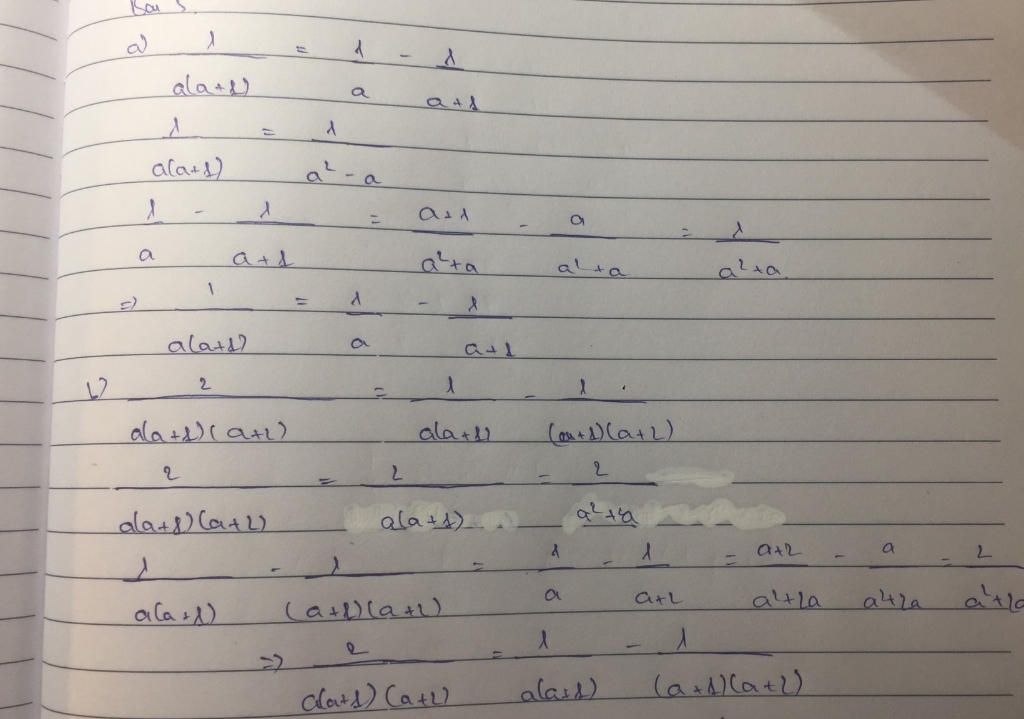 Bài 5
a) 1/a(a+1) = 1/a - 1/a+1
1/a(a+1) = 1/a² - a
1/a - 1/a+1 = a+1/a²+a - a/a²+a = 1/a²+a
=) 1/a(a+1) = 1/a - 1/a+1
b) 2/a(a+1)(a+2) = 1/a(a+1) - 1/(a+1)(a+2)
2/a(a+1)(a+2) = 2/a(a+1) = 2/a²+a
1/a(a+1) - 1/(a+1)(a+2) = 1/a - 1/a+2 = a+2/a²+2a - a/a²+2a = 2/a²+2a
=) 2/a(a+1)(a+2) = 1/a(a+1) - 1/(a+1)(a+2)